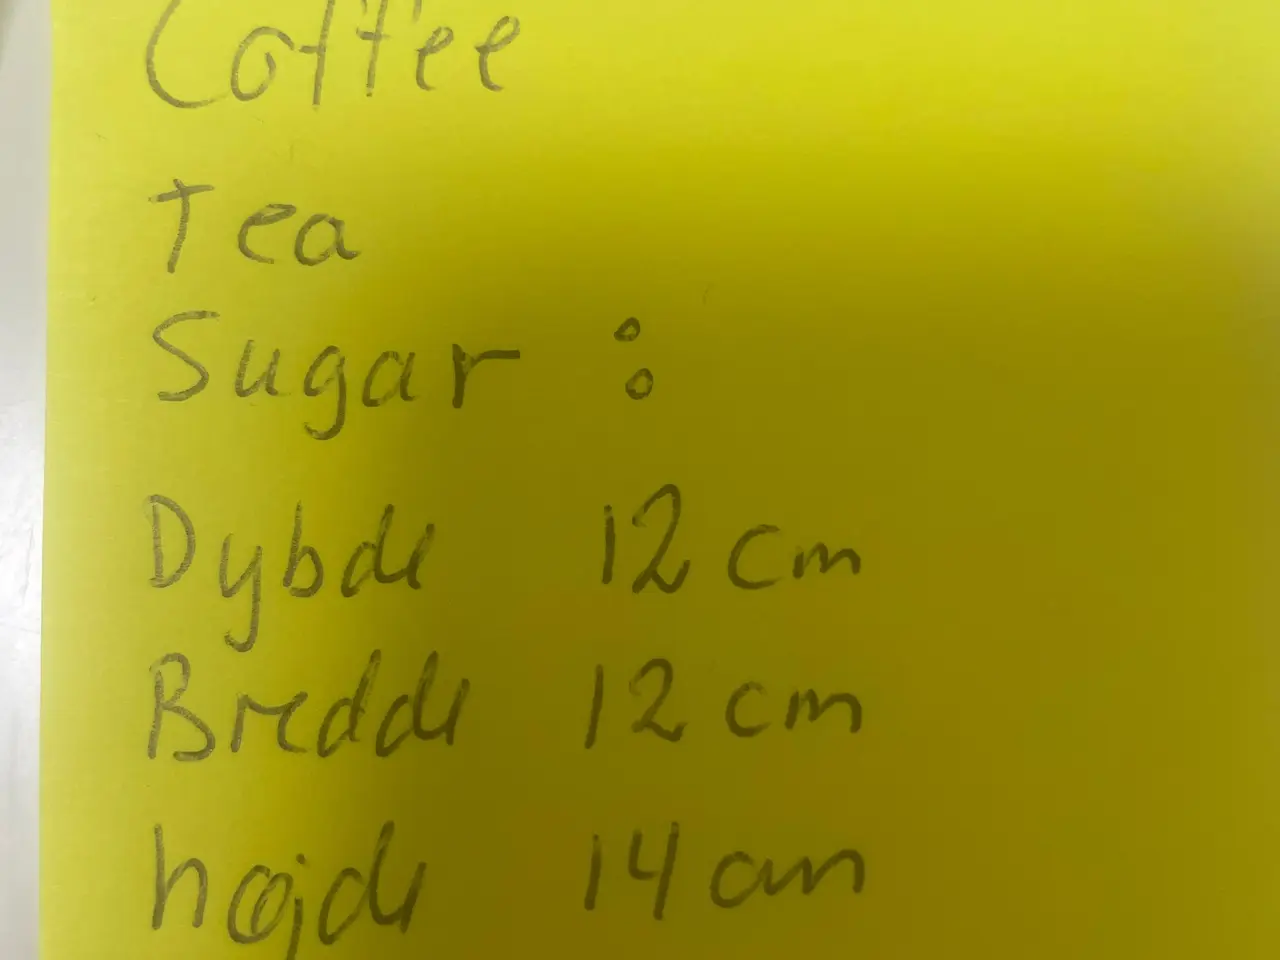 Coffee
Tea
Sugar :
Dybde 12 cm
Bredde 12 cm
højde 14 cm